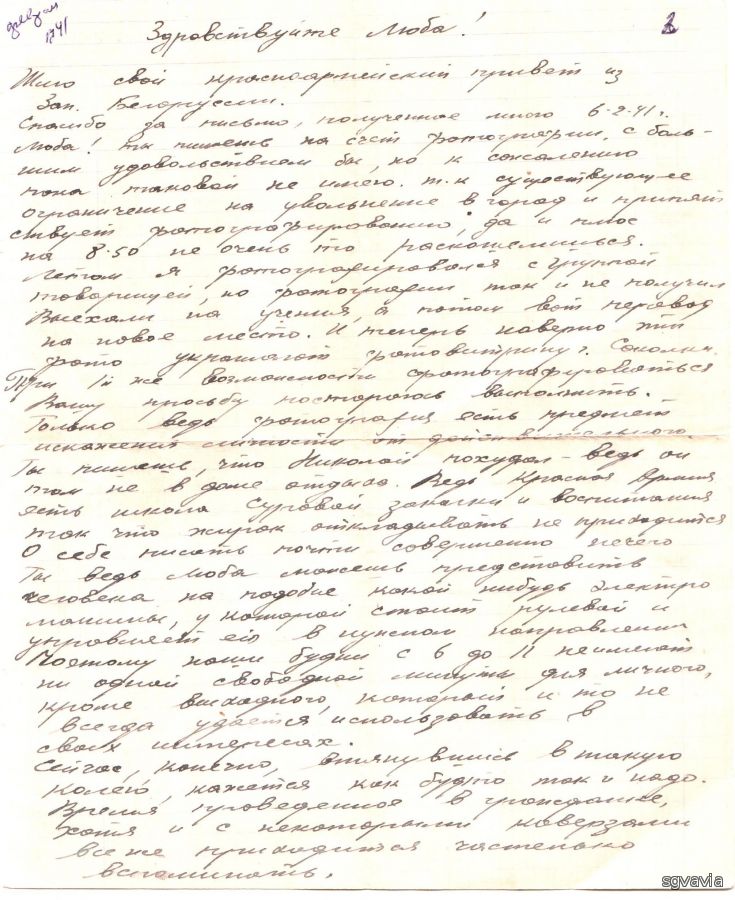 февраль
1941
2
Здравствуйте Люба!
Шлю свой красноармейский привет из
Зап. Белоруссии.
Спасибо за письмо, полученное мною 6-2-41 г.
Люба! ты пишешь на счет фотографии. С боль-
шим удовольствием бы, но к сожалению
пока таковой не имею. т.к существующее
ограничение на увольнение в город и препят
ствует фотографированию, да и плюс
на 8-50 не очень то раскошелишься.
Летом я фотографировался с группой
товарищей, но фотографии так и не получил
Выехали на учения, а потом вот перевод
на новое место. И теперь наверно эти
фото украшают фотовитрину г. Соколки.
При 1й же возможности сфотографироваться
Вашу просьбу постараюсь выполнить.
Только ведь фотография есть предмет
искажения личности от действительного.
Ты пишешь, что Николай похудал - ведь он
там не в доме отдыха. Ведь Красная Армия
есть школа суровой закалки и воспитания
так что жирок откладывать не приходится
О себе писать почти совершенно нечего
Ты ведь Люба можешь представить
человека на подобие какой нибудь электро
машины, у которой стоит рулевой и
управляет ею в нужном направлении
Поэтому наши будни с 6 до 11 не имеют
ни одной свободной минуты для личного,
кроме выходного, который и то не
всегда удается использовать в
своих интересах.
Сейчас, конечно, втянувшись в такую
колею, кажется как будто так и надо.
Время проведенное в гражданке,
хотя и с некоторыми каверзами
все же приходится частенько
вспоминать.
sgvavia